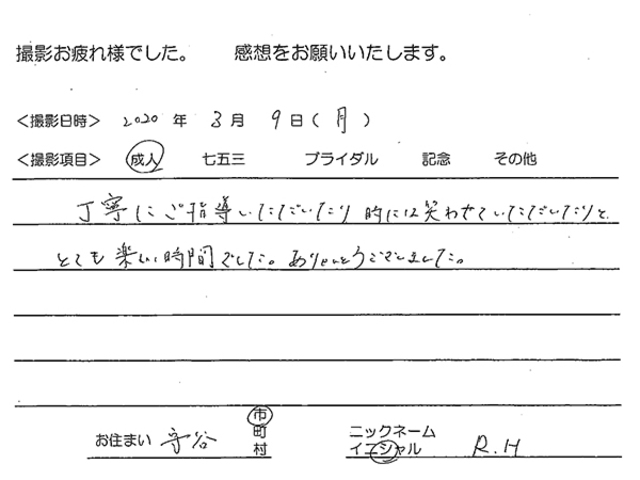 撮影お疲れ様でした。 感想をお願いいたします。
<撮影日時> 2020 年 3 月 9 日 ( 月 )
<撮影項目> 成人 七五三 ブライダル 記念 その他
丁寧にご指導いただいたり 時には笑わせていただいたりと、
とても楽しい時間でした。ありがとうございました。
お住まい 守谷 市
町
村
ニックネーム
イニシャル R.H